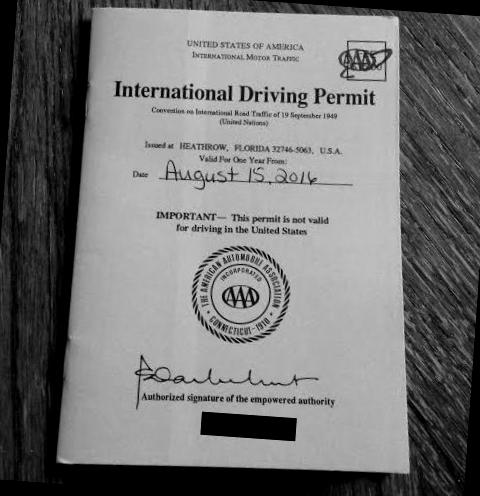 UNITED STATES OF AMERICA
INTERNATIONAL MOTOR TRAFFIC
AAA
International Driving Permit
Convention on International Road Traffic of 19 September 1949
(United Nations)
Issued at HEATHROW, FLORIDA 32746-5063, U.S.A.
Valid For One Year From:
Date August 15, 2016
IMPORTANT— This permit is not valid
for driving in the United States
THE AMERICAN AUTOMOBILE ASSOCIATION
INCORPORATED
AAA
CONNECTICUT-1910
Authorized signature of the empowered authority